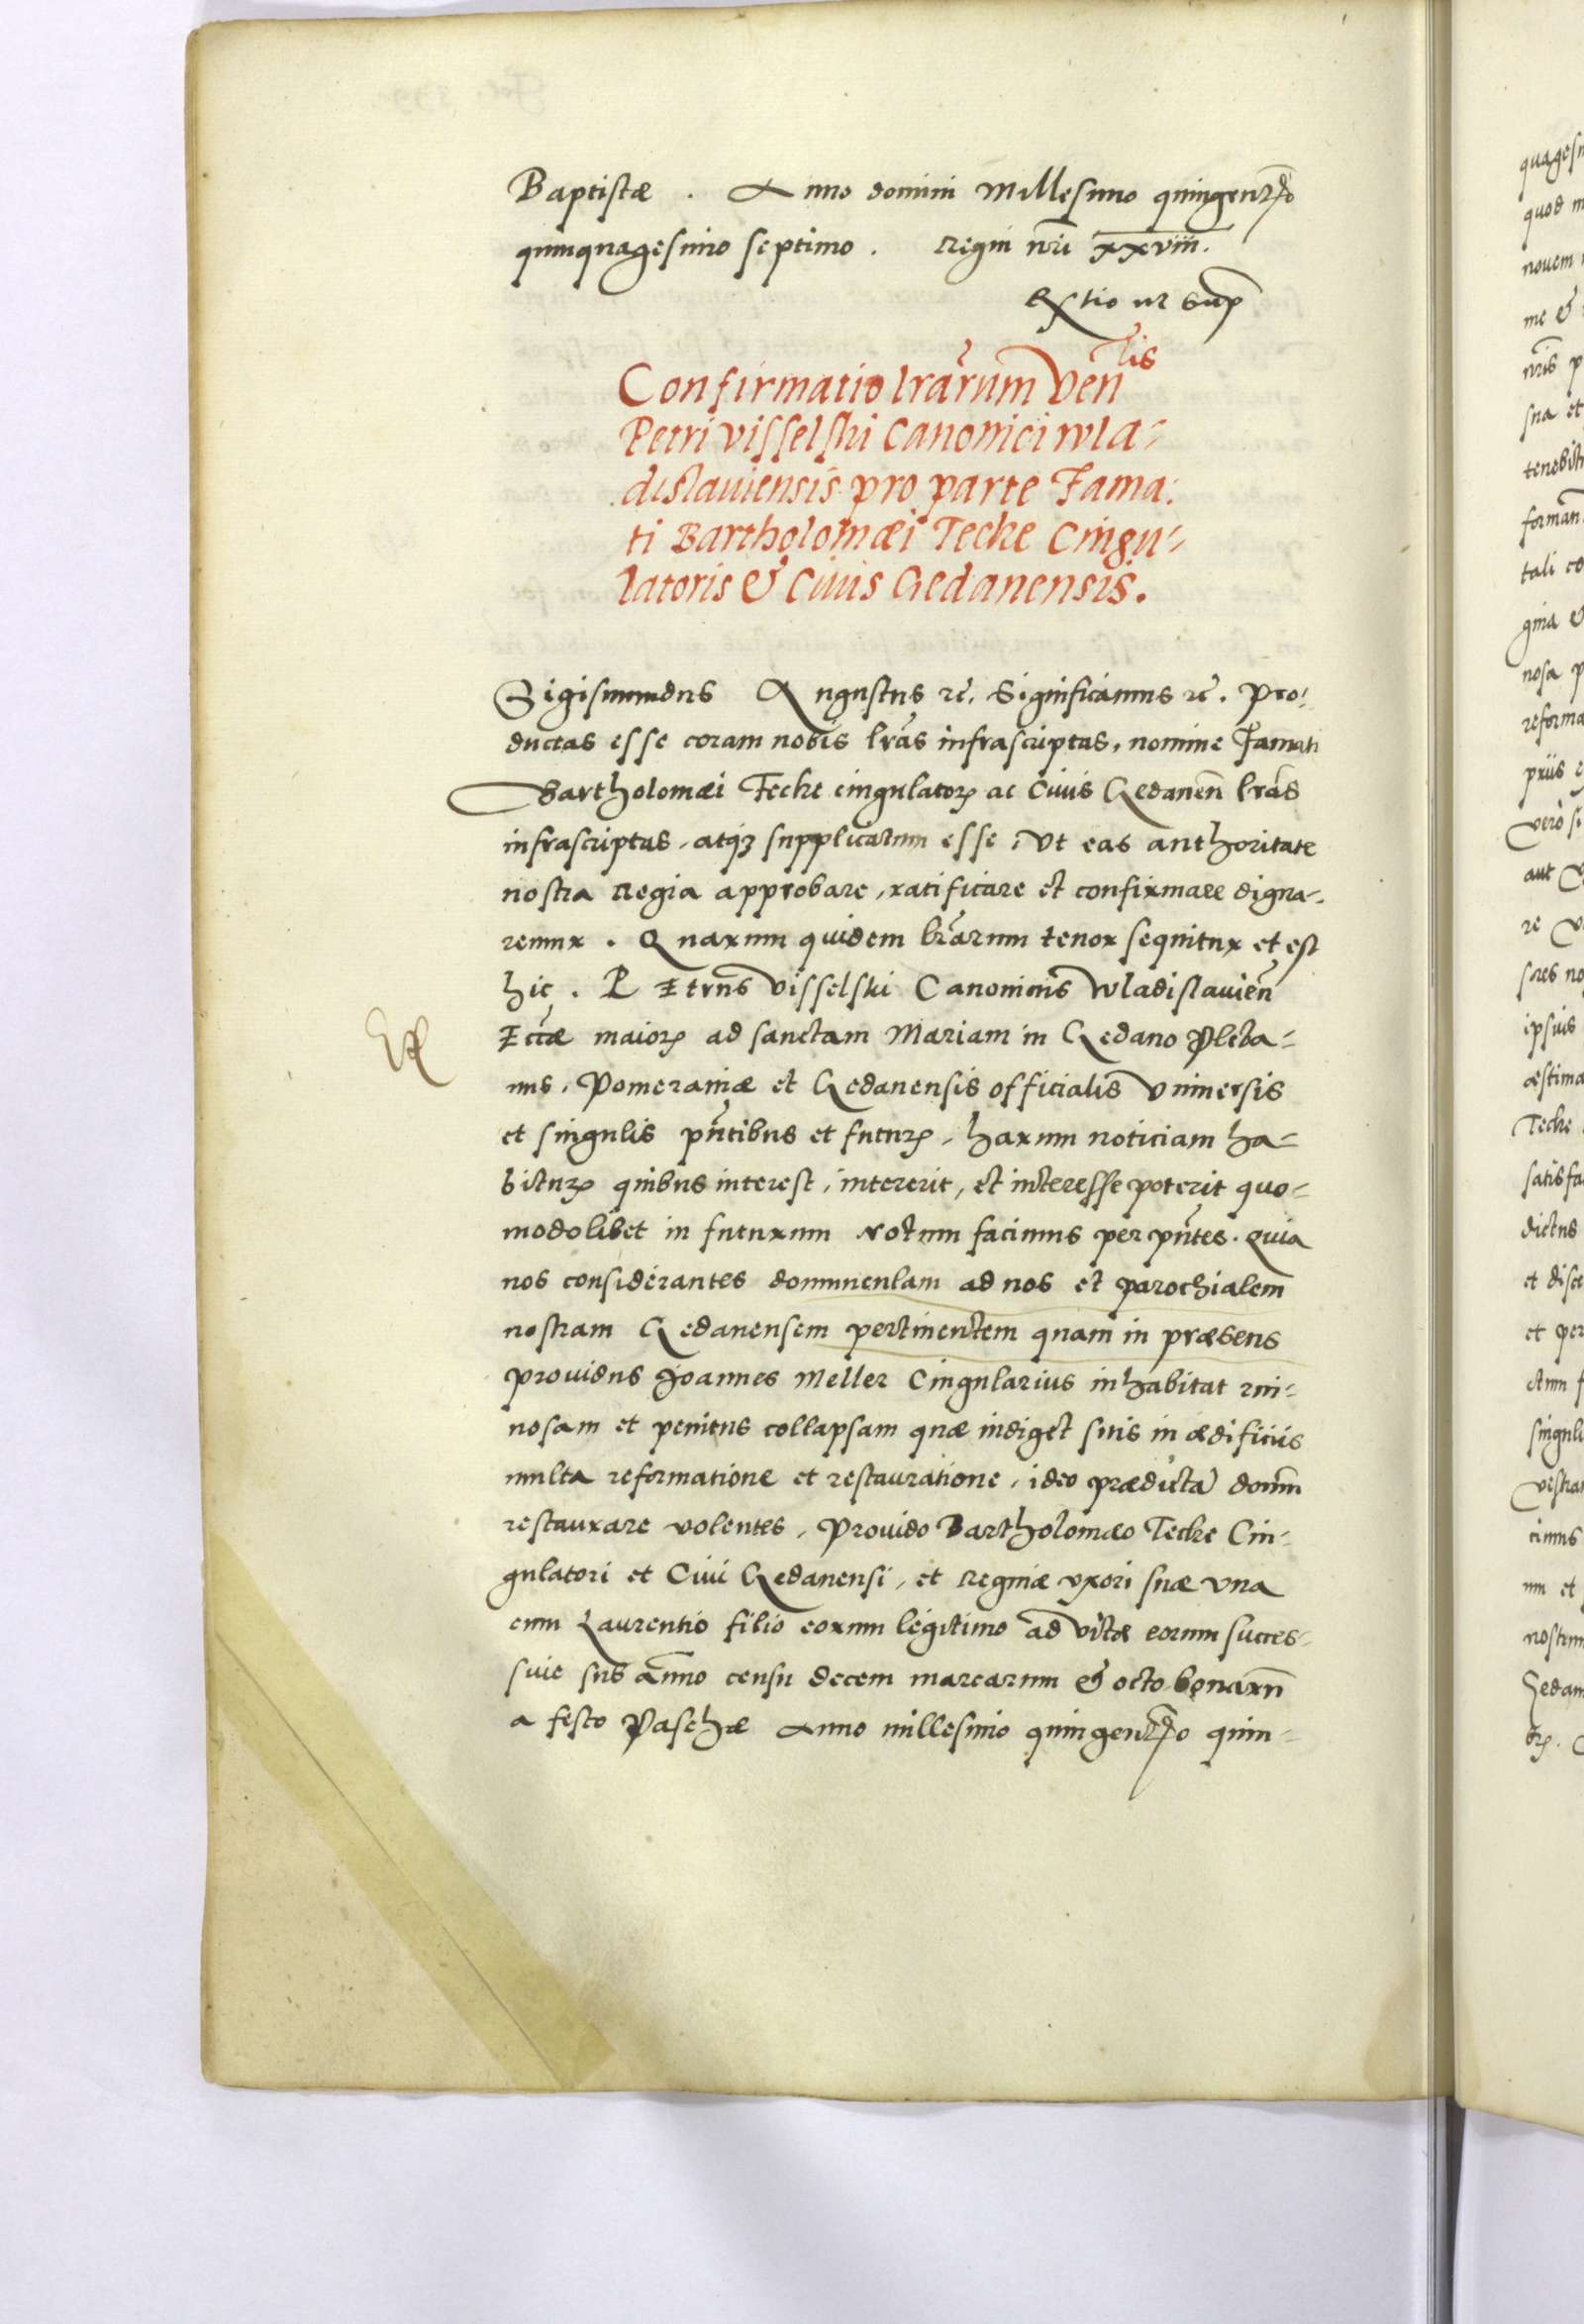 Baptistæ . Anno domini Millesimo quingentmo
quinquagesimo septimo . Regni nri xxviii.
Rxtio ut sup
Confirmatio lrarum Venlis
Petri Visselski Canonici Wla-
dislaviensis pro parte Fama:
ti Bartholomæi Tecke Cingu-
latoris & Civis Gedanensis.
Sigismundus Augustus rc. Significamus rc. Pro-
ductas esse coram nobis lras infrascriptas, nomine Famati
Bartholomæi Tecke cingulator ac Civis Gedanen lras
infrascriptas, atq3 supplicatum esse, Ut eas authoritate
nostra Regia approbare, ratificare et confirmare digna-
remur . Quarum quidem lrarum tenor sequitur et est
hic . PEtrus Visselski Canonicus Wladislavien
Eccæ maior ad sanctam Mariam in Gedano Pleba-
nus, Pomeraniæ et Gedanensis officialis Universis
et singulis pntibus et futur, harum noticiam ha-
bitur quibus interest, intererit, et interesse poterit quo-
modolibet in futurum Notum facimus per pntes. Quia
nos considerantes domunculam ad nos et parochialem
nostram Gedanensem pertinentem quam in præsens
providus Joannes Meller Cingularius inhabitat rui-
nosam et penitus collapsam quæ indiget suis in ædificiis
multa reformatione et restauratione, ideo prædicta domu
restaurare volentes, Provido Bartholomæo Tecke Cin-
gulatori et Civi Gedanensi, et Reginæ uxori suæ una
cum Laurentio filio eorum legitimo ad vitæ eorum succes-
sive sub anno censu decem marcarum & octo bonaru
a festo Paschæ Anno millesimo quingentmo quin-